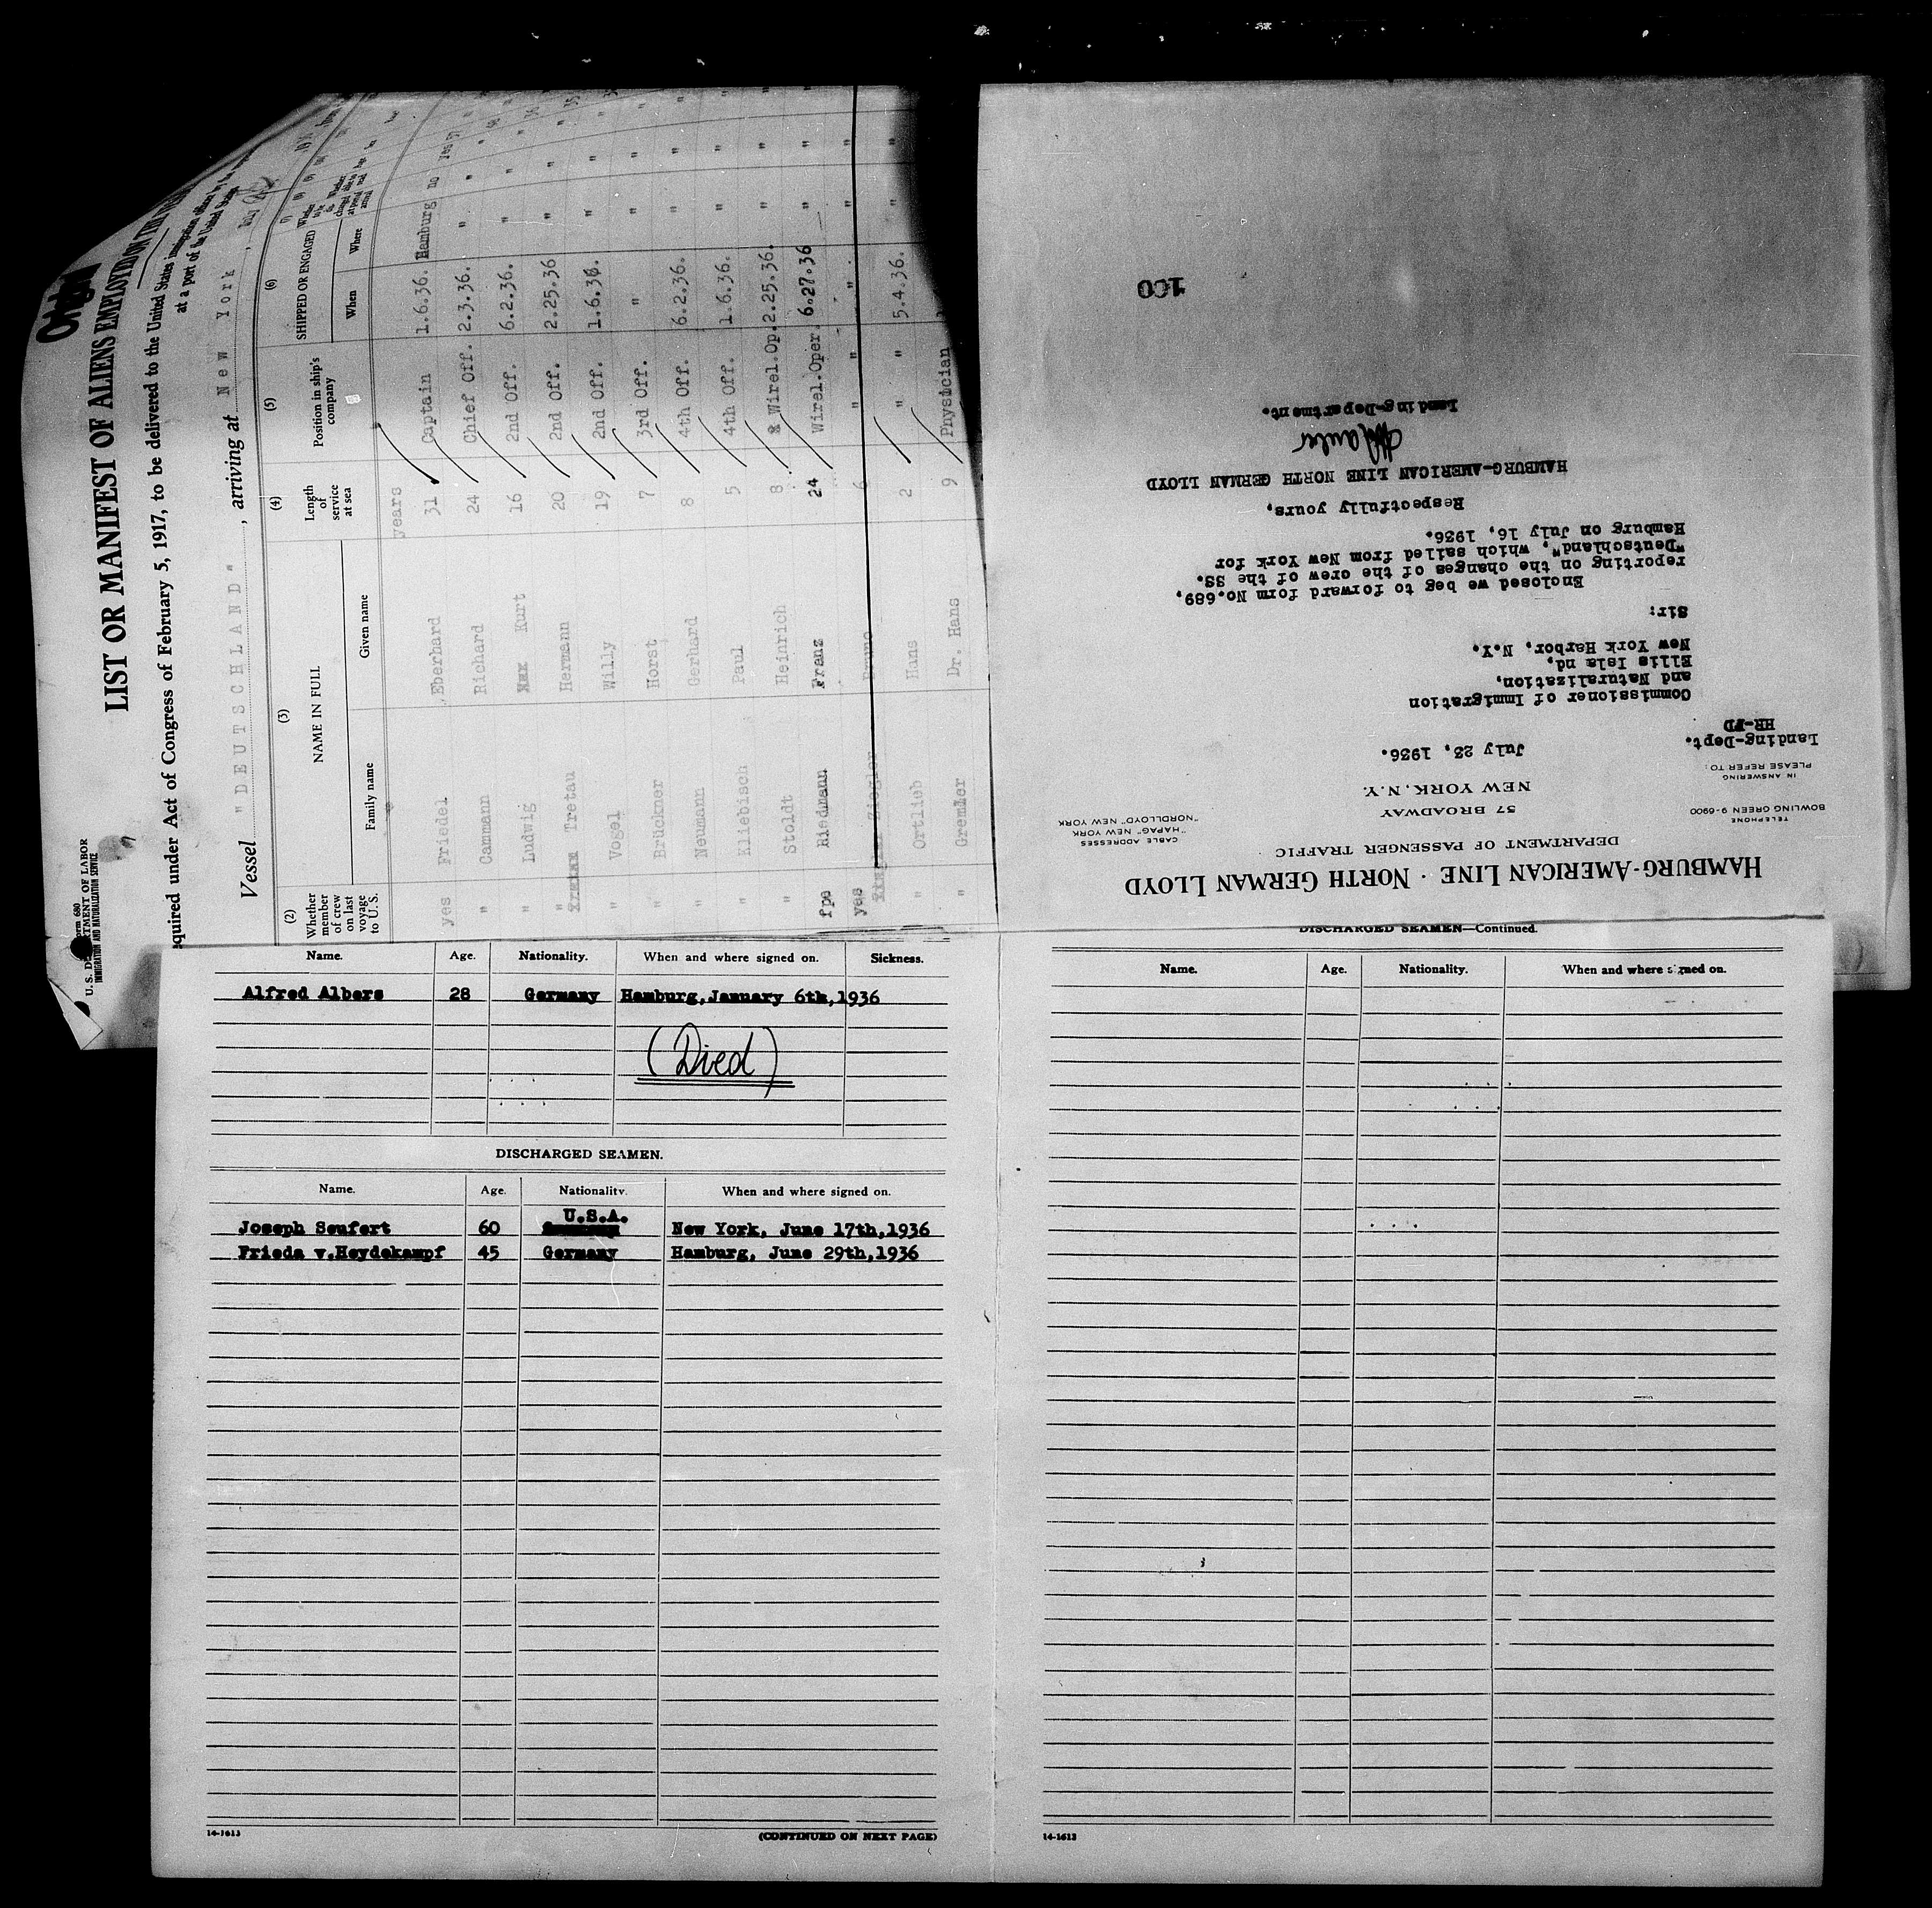 Original
U.S. DEPARTMENT OF LABOR
IMMIGRATION AND NATURALIZATION SERVICE
LIST OR MANIFEST OF ALIENS EMPLOYED ON THE
equired under Act of Congress of February 5, 1917, to be delivered to the United States immigration officer by the
at a port of the United States
Vessel "DEUTSCHLAND", arriving at New York
(2) (3) (4) (5) (6)
Whether member of crew on last voyage to U.S. NAME IN FULL Length of service at sea Position in ship's company SHIPPED OR ENGAGED
Family name Given name When Where
years
yes Friedel Eberhard 31 Captain 1.6.36. Hamburg no yes
" Cammann Richard 24 Chief Off. 2.3.36. "
" Ludwig Kurt 16 2nd Off. 6.2.36. "
" Tretau Hermann 20 2nd Off. 2.25.36 "
" Vogel Willy 19 2nd Off. 1.6.36. "
" Brückner Horst 7 3rd Off. " "
" Neumann Gerhard 8 4th Off. 6.2.36. "
" Kliebisch Paul 5 4th Off. 1.6.36. "
" Stoldt Heinrich 8 Wirel.Op. 2.25.36. "
fpe Riedmann Franz 24 Wirel.Oper. 6.27.36 "
yes Ziegler Bruno 6 " " "
" Ortlieb Hans 2 " 5.4.36. "
" Gremler Dr. Hans 9 Physician
HAMBURG-AMERICAN LINE · NORTH GERMAN LLOYD
DEPARTMENT OF PASSENGER TRAFFIC
57 BROADWAY
NEW YORK, N.Y.
TELEPHONE
BOWLING GREEN 9-6900
CABLE ADDRESSES
"HAPAG" NEW YORK
"NORDLLOYD" NEW YORK
IN ANSWERING
PLEASE REFER TO:
Landing-Dept.
HR-FD
July 23, 1936.
Commissioner of Immigration
and Naturalization,
Ellis Isla nd,
New York Harbor, N.Y.
Sir:
Enclosed we beg to forward form No.689,
reporting on the changes of the crew of the SS.
"Deutschland", which sailed from New York for
Hamburg on July 16, 1936.
Respectfully yours,
HAMBURG-AMERICAN LINE NORTH GERMAN LLOYD
Landing-Department.
100
Name. Age. Nationality. When and where signed on. Sickness.
Alfred Albers 28 Germany Hamburg,January 6th,1936
(Died)
DISCHARGED SEAMEN.
Name. Age. Nationality. When and where signed on.
Joseph Seufert 60 U.S.A. New York, June 17th,1936
Frieda v.Heydekampf 45 Germany Hamburg, June 29th,1936
14-1613
(CONTINUED ON NEXT PAGE)
DISCHARGED SEAMEN—Continued.
Name. Age. Nationality. When and where signed on.
14-1613